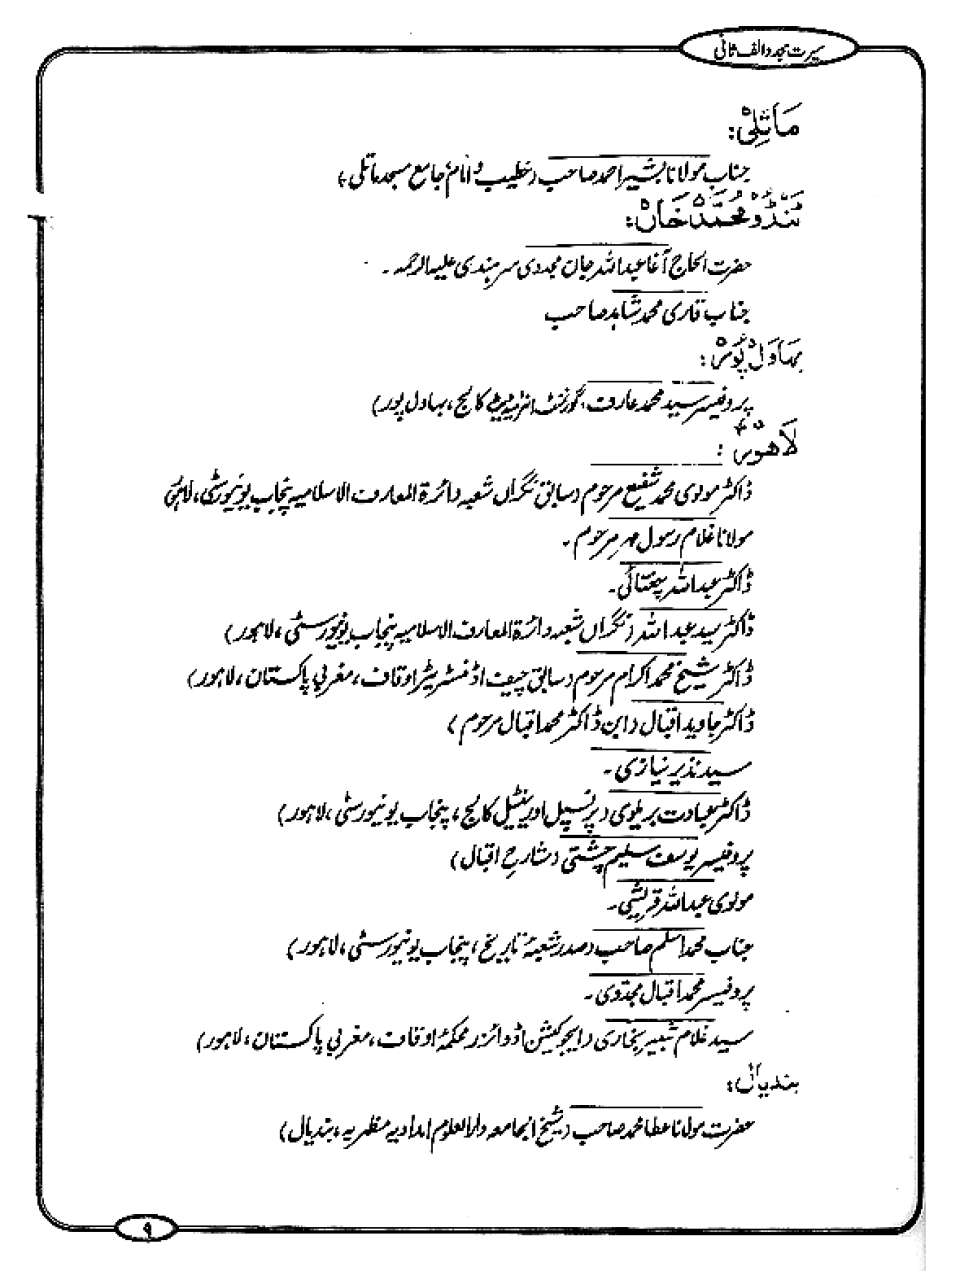 سیرت مجدد الف ثانی
ماتلی:
جناب مولانا بشیر احمد صاحب (خطیب و امام جامع مسجد ماتلی)
ٹنڈو محمد خان:
حضرت الحاج آغا عبداللہ جان مجددی سرہندی علیہ الرحمہ۔
جناب قاری محمد شاہد صاحب
بہاول پور:
پروفیسر سید محمد عارف (گورنمنٹ انٹرمیڈیٹ کالج، بہاول پور)
لاھور:
ڈاکٹر مولوی محمد شفیع مرحوم (سابق نگراں شعبہ دائرۃ المعارف الاسلامیہ پنجاب یونیورسٹی، لاہور)
مولانا غلام رسول مہر مرحوم۔
ڈاکٹر عبداللہ چغتائی۔
ڈاکٹر سید عبداللہ (نگراں شعبہ دائرۃ المعارف الاسلامیہ پنجاب یونیورسٹی، لاہور)
ڈاکٹر شیخ محمد اکرام مرحوم (سابق چیف اڈمنسٹریٹر اوقاف، مغربی پاکستان، لاہور)
ڈاکٹر جاوید اقبال (ابن ڈاکٹر محمد اقبال مرحوم)
سید نذیر نیازی۔
ڈاکٹر عبادت بریلوی (پرنسپل اورینٹیل کالج، پنجاب یونیورسٹی، لاہور)
پروفیسر یوسف سلیم چشتی (شارح اقبال)
مولوی عبداللہ قریشی۔
جناب محمد اسلم صاحب (صدر شعبۂ تاریخ، پنجاب یونیورسٹی، لاہور)
پروفیسر محمد اقبال مجددی۔
سید غلام شبیر بخاری (ایجوکیشن اڈوائزر محکمۂ اوقاف، مغربی پاکستان، لاہور)
بندیال:
حضرت مولانا عطا محمد صاحب (شیخ الجامعہ دارالعلوم امدادیہ مظہریہ، بندیال)
۹